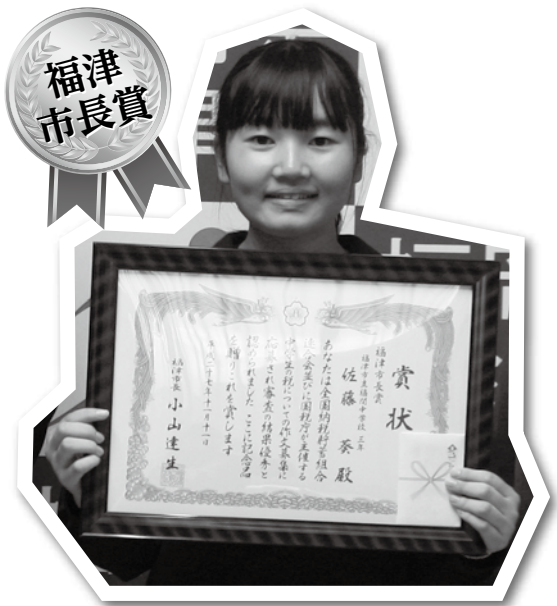 福津
市長賞
賞状
福津市長賞
福津市立福間中学校 三年
佐藤 葵 殿
あなたは全国納税貯蓄組合
連合会並びに国税庁が主催する
中学生の税についての作文募集に
応募され審査の結果優秀と
認められました ここに記念品
を贈りこれを賞します
平成二十七年十一月十一日
福津市長 小山達生